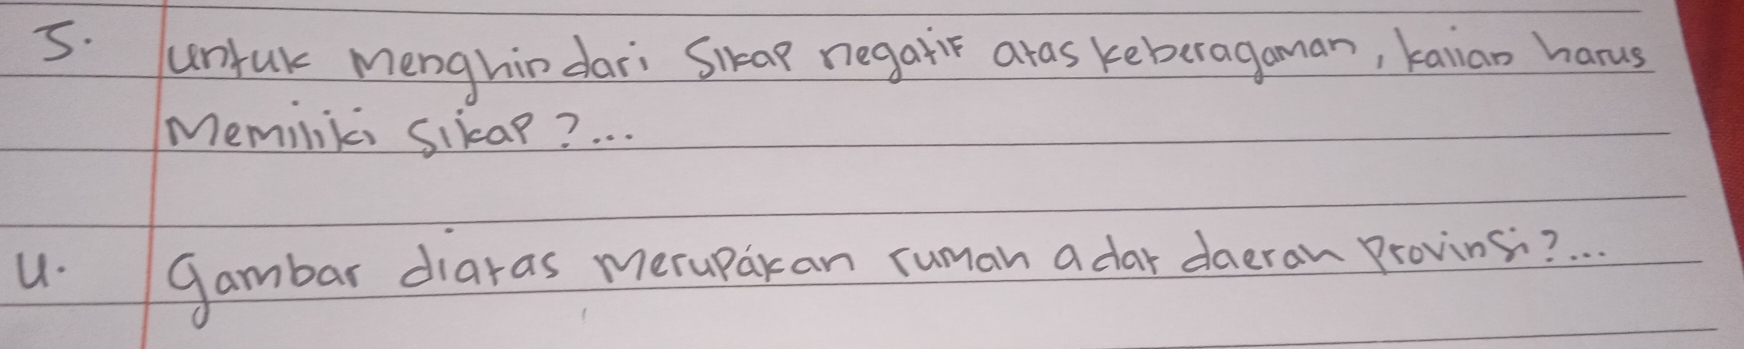 5. untuk menghindari sikap negatif atas keberagaman, kalian harus
memiliki sikap?...
4. gambar diatas merupakan rumah adat daerah provinsi?...